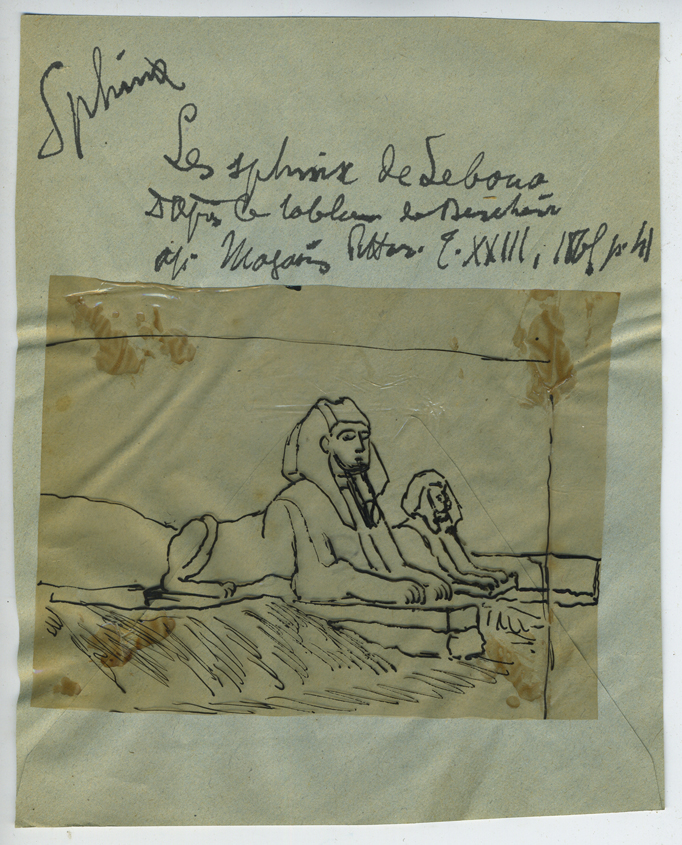 Sphinx
Les sphinx de Seboua
D'après le tableau de Berchère
ap. Magasin Pittor. T. XXIII, p. 41